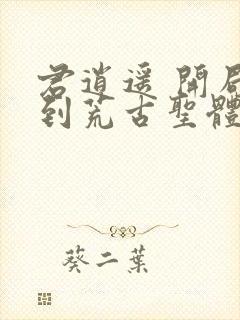 君逍遥 開局
到荒古聖體
葵二葉